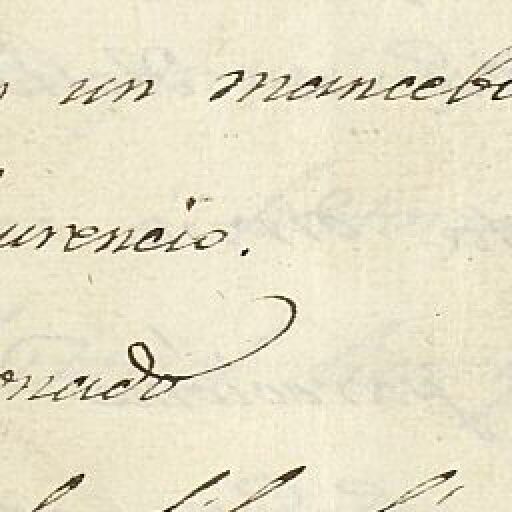 un mancebo
urencio.
onado